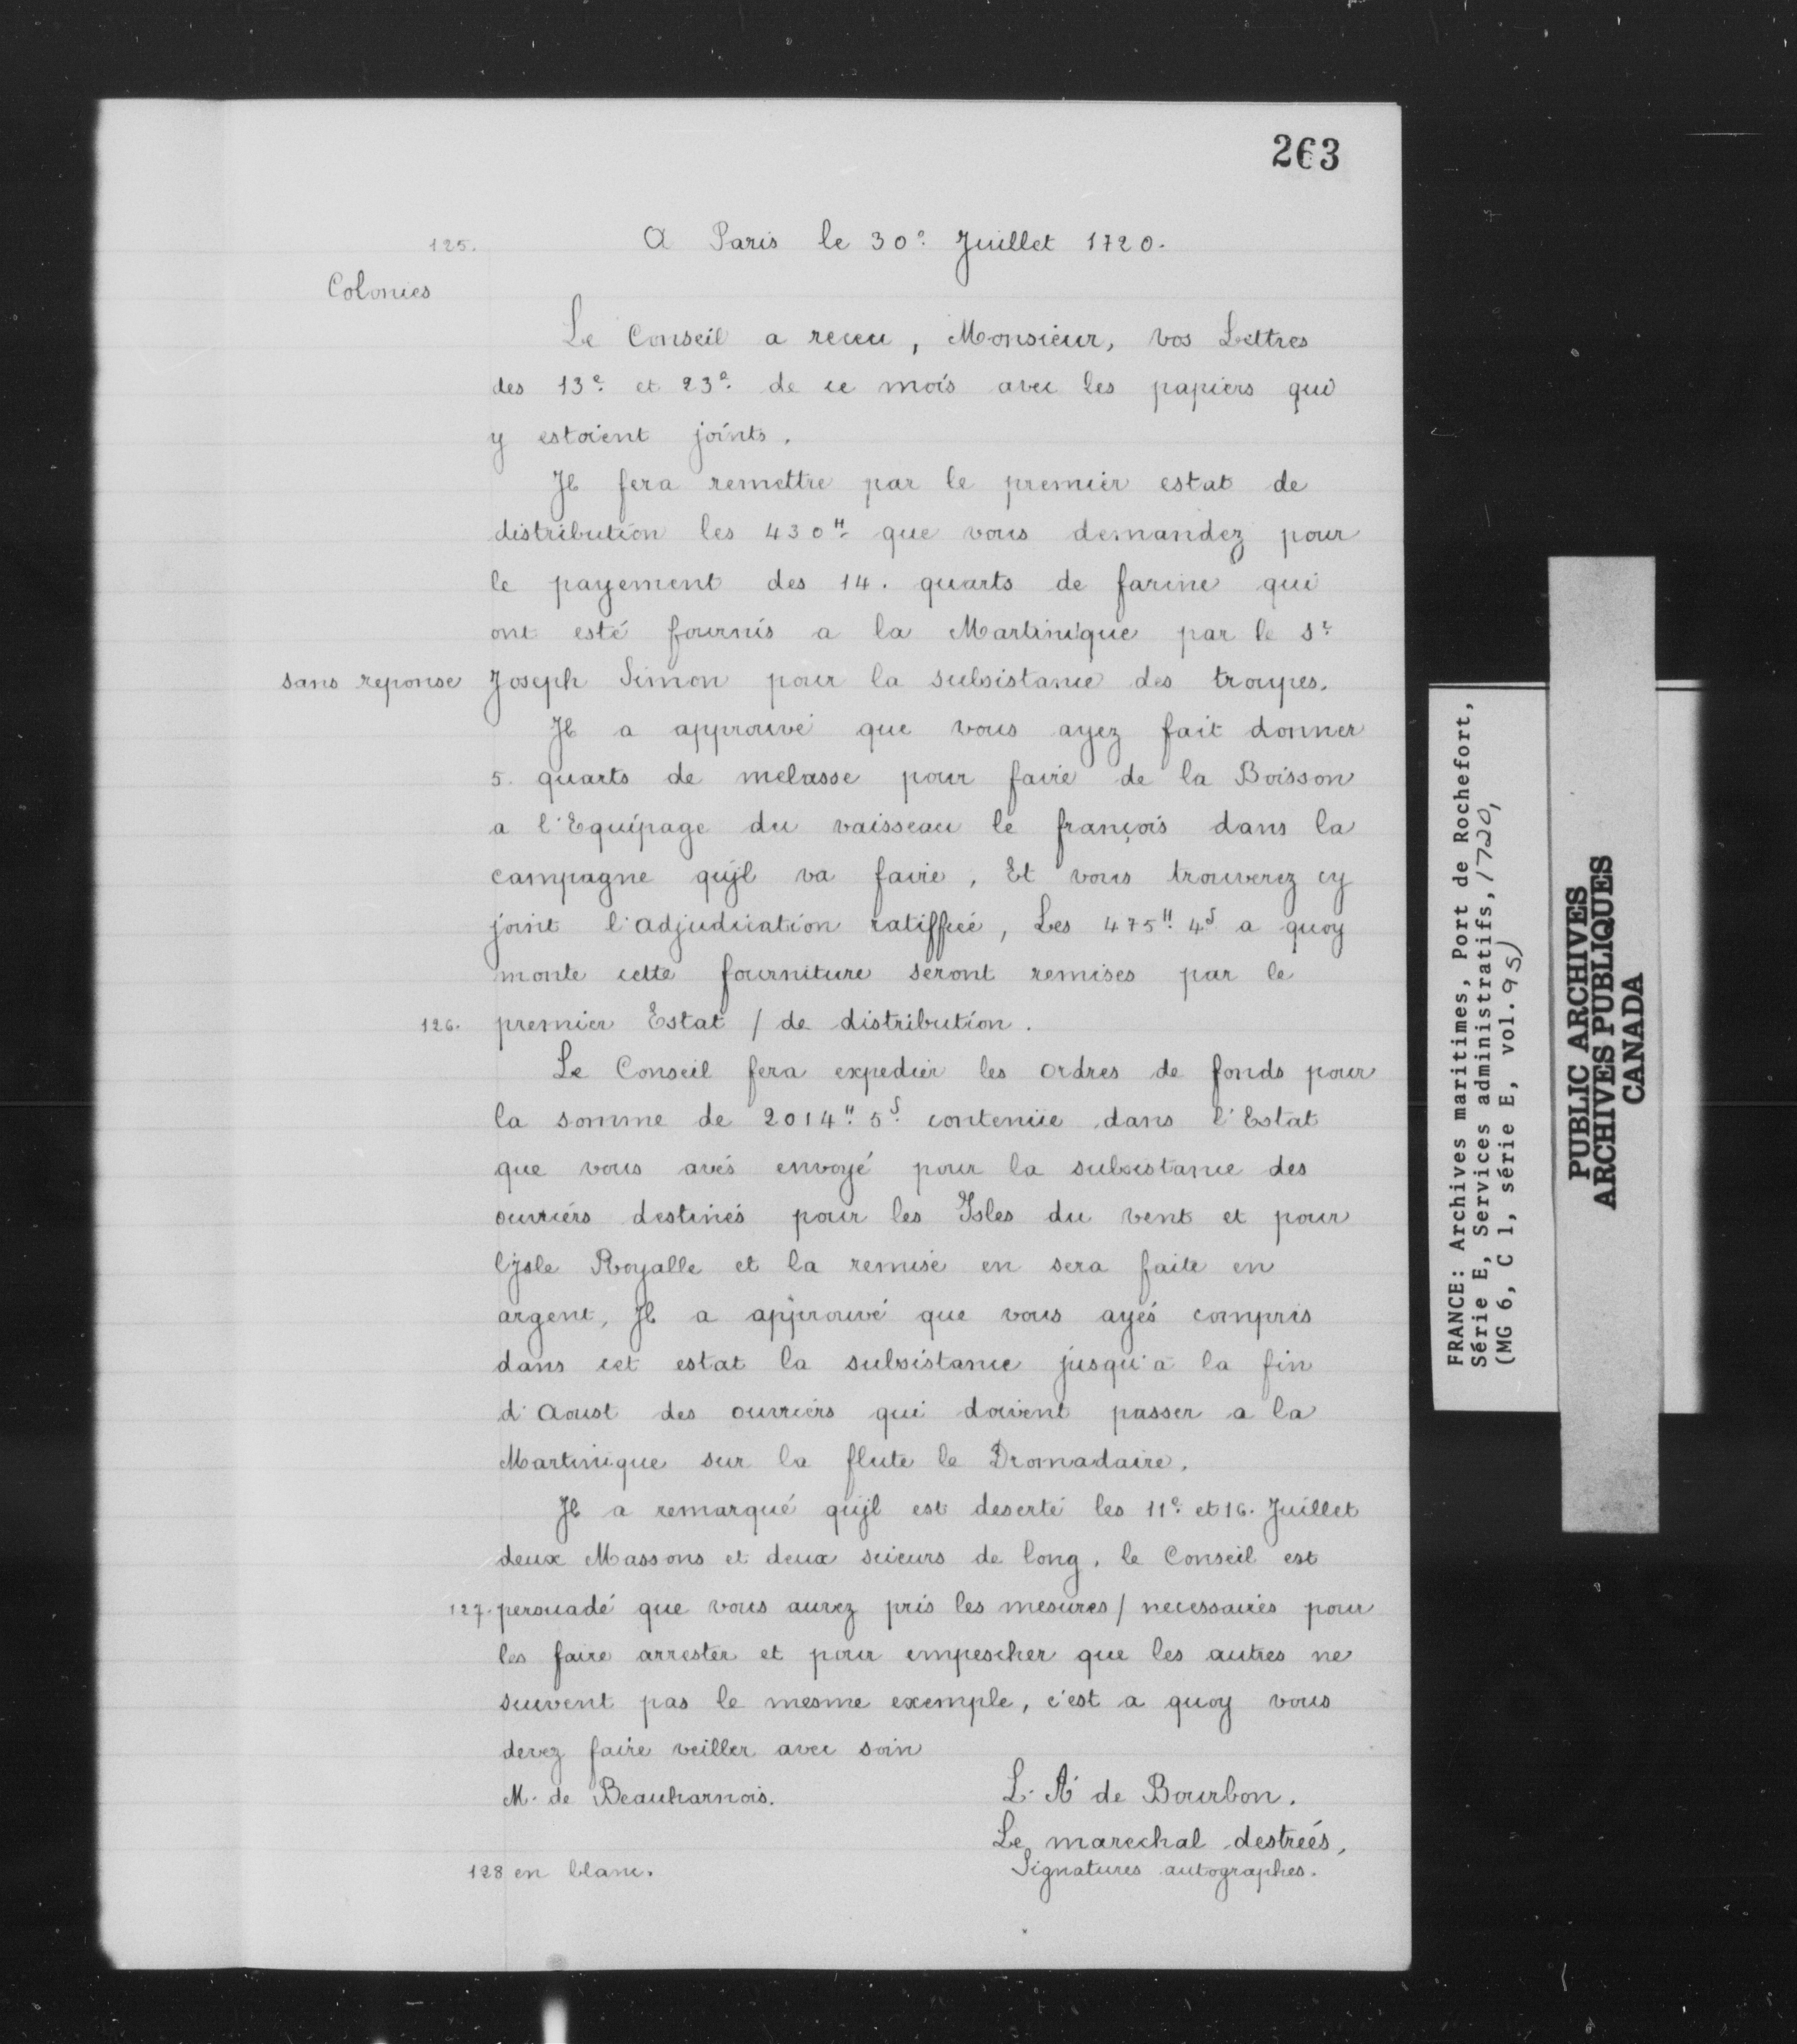 263
125. A Paris le 30e Juillet 1720.
Colonies
Le Conseil a receu, Monsieur, vos Lettres
des 13e et 23e de ce mois avec les papiers qui
y estoient joints.
Jl fera remettre par le premier estat de
distribution les 430# que vous demandez pour
le payement des 14. quarts de farine qui
ont esté fournis a la Martinique par le Sr
sans reponse Joseph Simon pour la subsistance des troupes.
Jl a approuvé que vous ayez fait donner
5. quarts de melasse pour faire de la Boisson
a l'Equipage du vaisseau le françois dans la
campagne qu'jl va faire, Et vous trouverez cy
joint l'adjudication ratiffiée, Les 475# 4s a quoy
monte cette fourniture seront remises par le
126. premier Estat / de distribution.
Le Conseil fera expedier les ordres de fonds pour
la somme de 2014# 5s contenüe dans l'Estat
que vous avés envoyé pour la subsistance des
ouvriers destinés pour les Jsles du vent et pour
l'jsle Royalle et la remise en sera faite en
argent, Jl a approuvé que vous ayés compris
dans cet estat la subsistance jusqu'a la fin
d'Aoust des ouvriers qui doivent passer a la
Martinique sur la flute le Dromadaire.
Jl a remarqué qu'jl est deserté les 11e et 16. Juillet
deux Massons et deux scieurs de long, le Conseil est
127. persuadé que vous aurez pris les mesures / necessaires pour
les faire arrester et pour empescher que les autres ne
suivent pas le mesme exemple, c'est a quoy vous
devez faire veiller avec soin
M. de Beauharnois. L. A de Bourbon.
Le marechal destreés,
128 en blanc. Signatures autographes.
FRANCE: Archives maritimes, Port de Rochefort,
Série E, Services administratifs, 1720,
(MG 6, C 1, série E, vol. 95)
PUBLIC ARCHIVES
ARCHIVES PUBLIQUES
CANADA